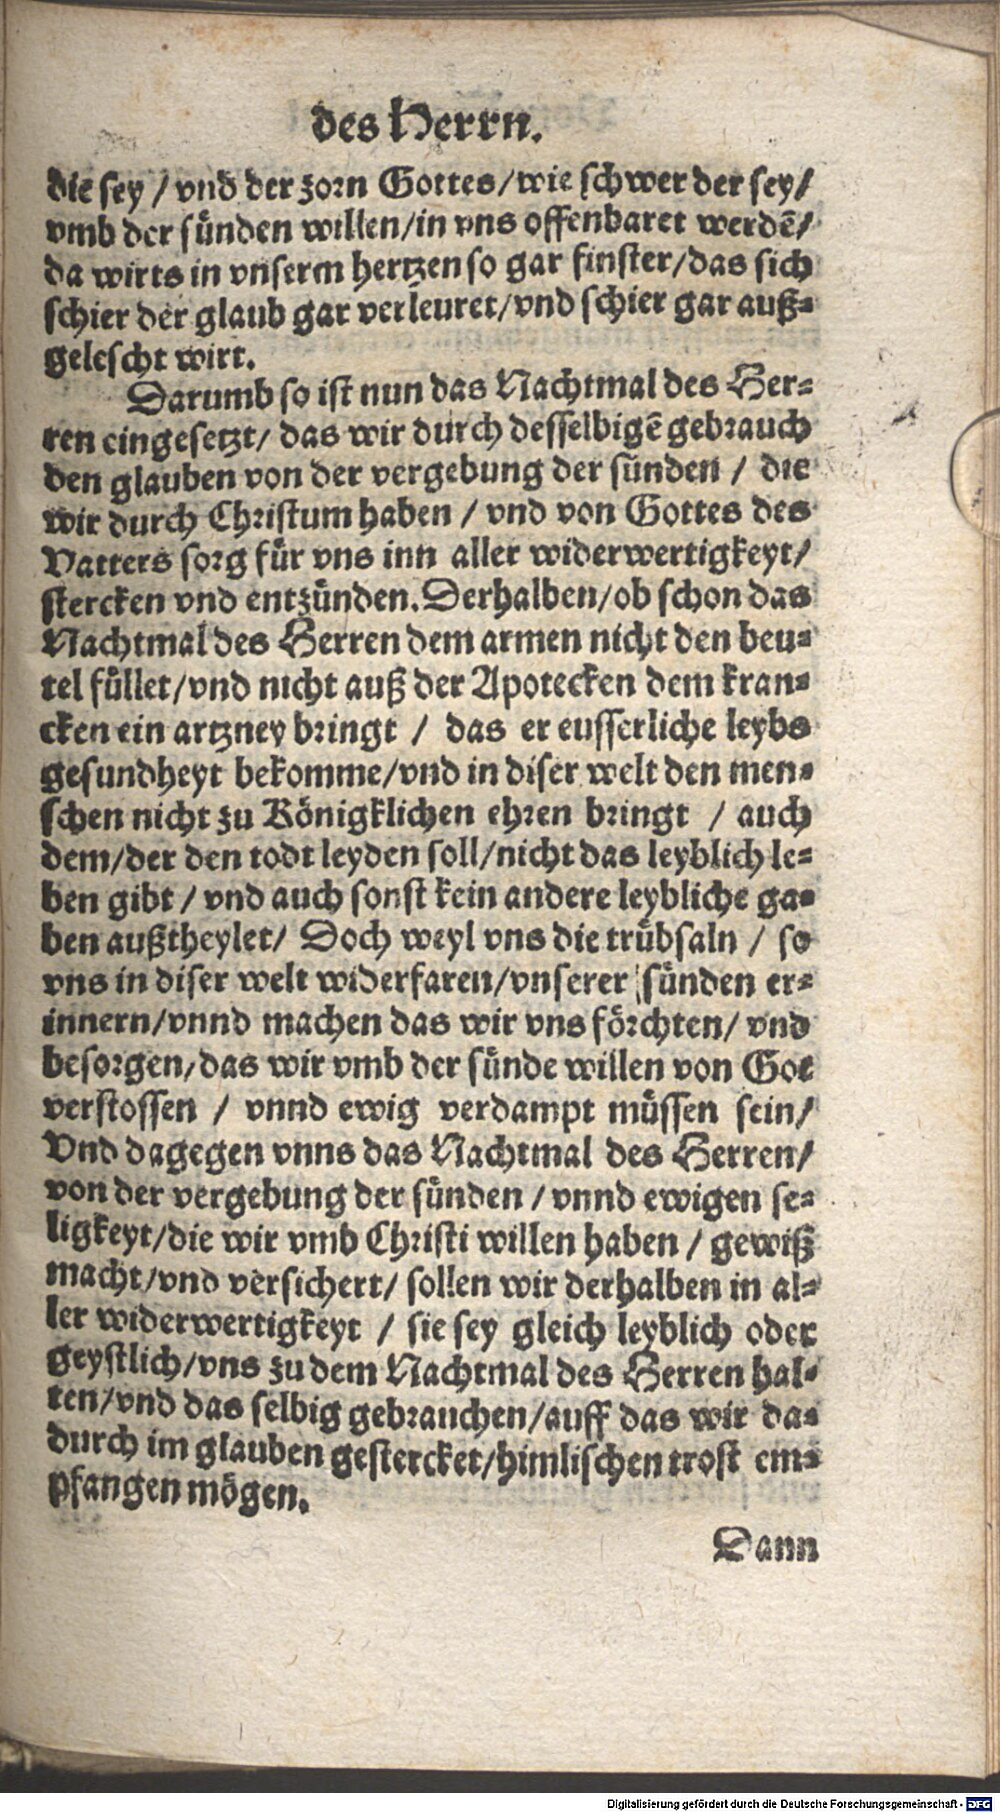 des Herrn.
die sey / vnd der zorn Gottes / wie schwer der sey /
vmb der sünden willen / in vns offenbaret werdē /
da wirts in vnserem hertzen so gar finster / das sich
schier der glaub gar verleuret / vnd schier gar auß-
gelescht wirt.
Darumb so ist nun das Nachtmal des Her-
ren eingesetzt / das wir durch desselbigē gebrauch
den glauben von der vergebung der sünden / die
wir durch Christum haben / vnd von Gottes des
Vatters sorg für vns inn aller widerwertigkeyt /
stercken vnd entzünden. Derhalben / ob schon das
Nachtmal des Herren dem armen nicht den beu-
tel füllet / vnd nicht auß der Apotecken dem kran-
cken ein artzney bringt / das er eusserliche leybs
gesundheyt bekomme / vnd in diser welt den men-
schen nicht zu Königklichen ehren bringt / auch
dem / der den todt leyden soll / nicht das leyblich le-
ben gibt / vnd auch sonst kein andere leybliche ga-
ben außtheylet / Doch weyl vns die trübsaln / so
vns in diser welt widerfaren / vnserer sünden er-
innern / vnnd machen das wir vns förchten / vnd
besorgen / das wir vmb der sünde willen von Got
verstossen / vnnd ewig verdampt müssen sein /
Vnd dagegen vnns das Nachtmal des Herren /
von der vergebung der sünden / vnnd ewigen se-
ligkeyt / die wir vmb Christi willen haben / gewiß
macht / vnd versichert / sollen wir derhalben in al-
ler widerwertigkeyt / sie sey gleich leyblich oder
geystlich / vns zu dem Nachtmal des Herren hal-
ten / vnd das selbig gebrauchen / auff das wir da-
durch im glauben gestercket / himlischen trost em-
pfangen mögen.
Dann
Digitalisierung gefördert durch die Deutsche Forschungsgemeinschaft - DFG